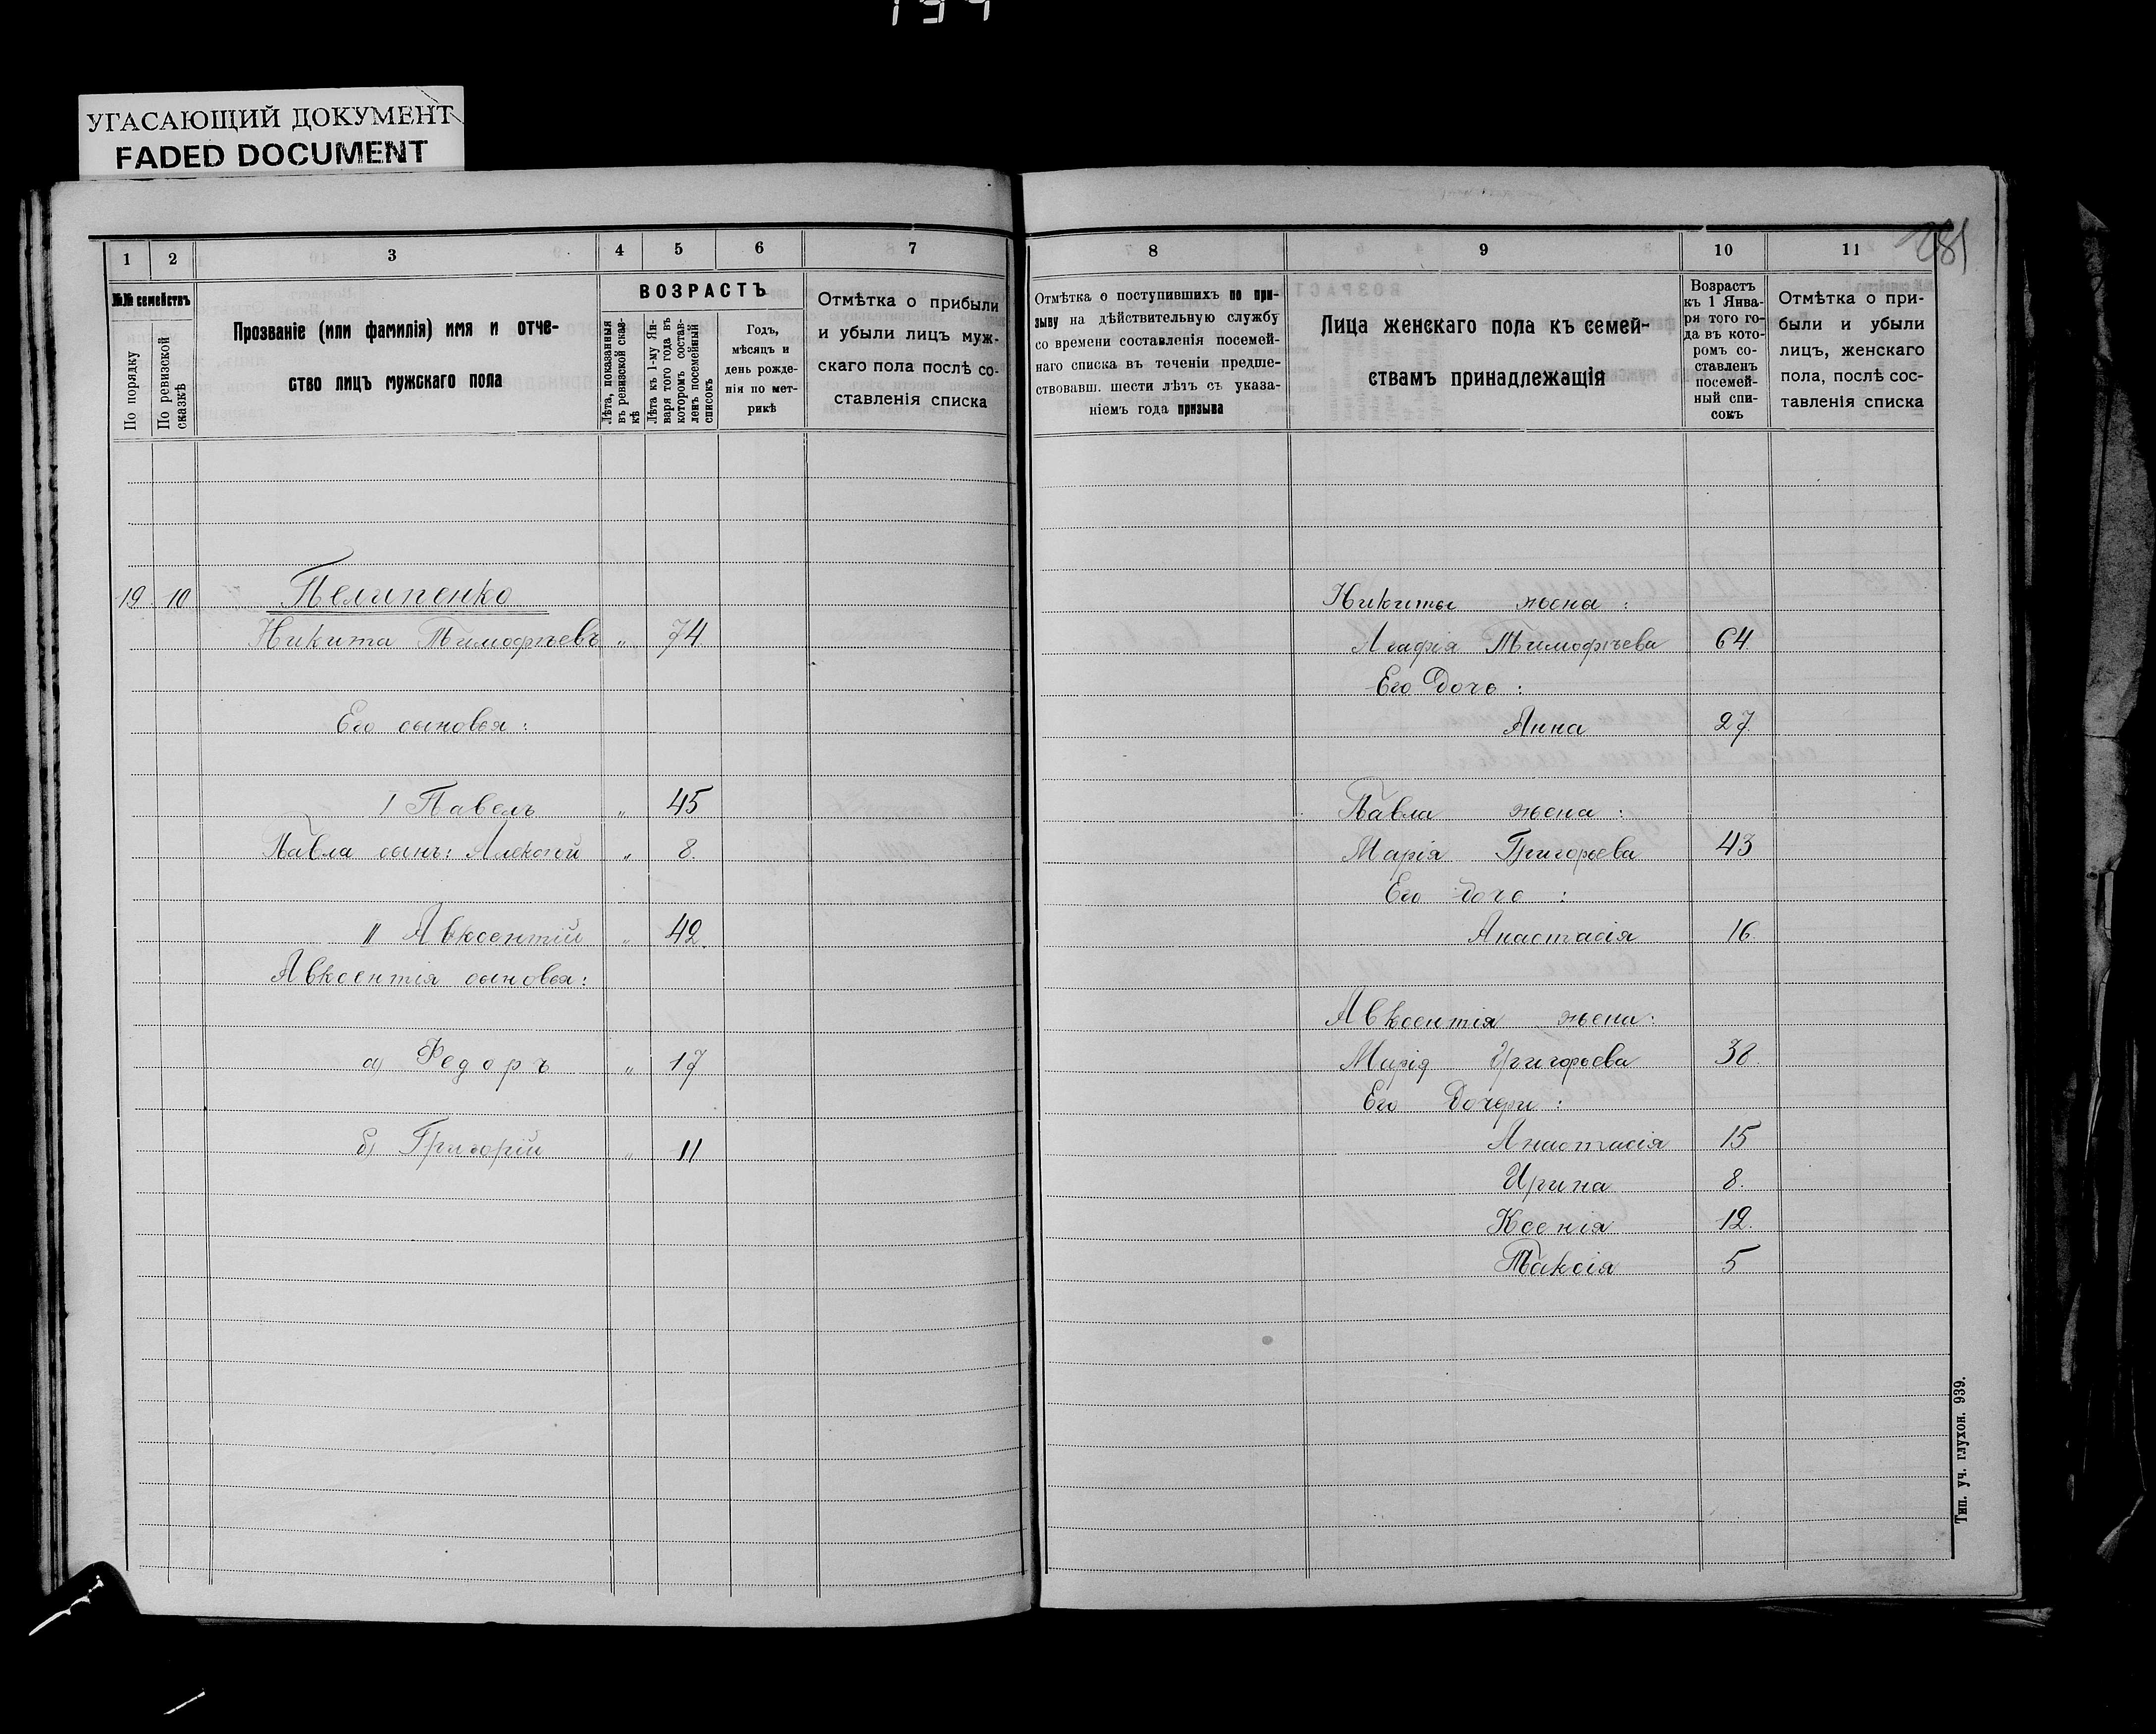 УГАСАЮЩИЙ ДОКУМЕНТ
FADED DOCUMENT
1 2 3 4 5 6 7
№№ семействъ
По порядку
По ревизской сказкѣ
Прозваніе (или фамилія) имя и отче-
ство лицъ мужскаго пола
ВОЗРАСТЪ
Лѣта, показанныя
въ ревизской сказ-
кѣ
Лѣта къ 1-му Ян-
варя того года въ
которомъ состав-
ленъ посемейный
списокъ
Годъ,
мѣсяцъ и
день рожде-
нія по мет-
рикѣ
Отмѣтка о прибыли
и убыли лицъ муж-
скаго пола послѣ со-
ставленія списка
19 10 Пелипенко
Никита Тимофѣевъ „ 74
Его сыновья:
I Павелъ „ 45
Павла сынъ: Алексѣй „ 8.
II Авксентій „ 42.
Авксентія сыновья:
а) Федоръ „ 17
б) Григорій „ 11
281
8 9 10 11
Отмѣтка о поступившихъ по при-
зыву на дѣйствительную службу
со времени составленія посемей-
наго списка въ теченіи предше-
ствовавш. шести лѣтъ съ указа-
ніемъ года призыва
Лица женскаго пола къ семей-
ствамъ принадлежащія
Возрастъ
къ 1 Янва-
ря того го-
да въ кото-
ромъ со-
ставленъ
посемей-
ный спи-
сокъ
Отмѣтка о при-
были и убыли
лицъ, женскаго
пола, послѣ сос-
тавленія списка
Никиты жена:
Агафія Тимофѣева 64
Его дочь:
Анна 27
Павла жена:
Марія Григорьева 43
Его дочь:
Анастасія 16.
Авксентія жена:
Марія Григорьева 38.
Его дочери:
Анастасія 15
Ирина 8.
Ксенія 12.
5
Тип. уч. глухон. 939.